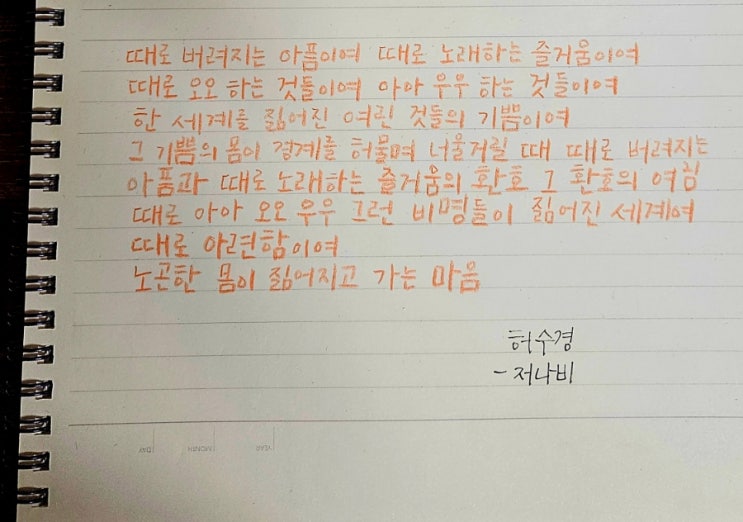 때로 버려지는 아픔이여 때로 노래하는 즐거움이여
때로 오오 하는 것들이여 아아 우우 하는 것들이여
한 세계를 짊어진 여린 것들의 기쁨이여
그 기쁨의 몸이 경계를 허물며 너울거릴 때 때로 버려지는
아픔과 때로 노래하는 즐거움의 환호 그 환호의 여림
때로 아아 오오 우우 그런 비명들이 짊어진 세계여
때로 아련함이여
노곤한 몸이 짊어지고 가는 마음
허수경
- 저나비
YEAR MONTH DAY